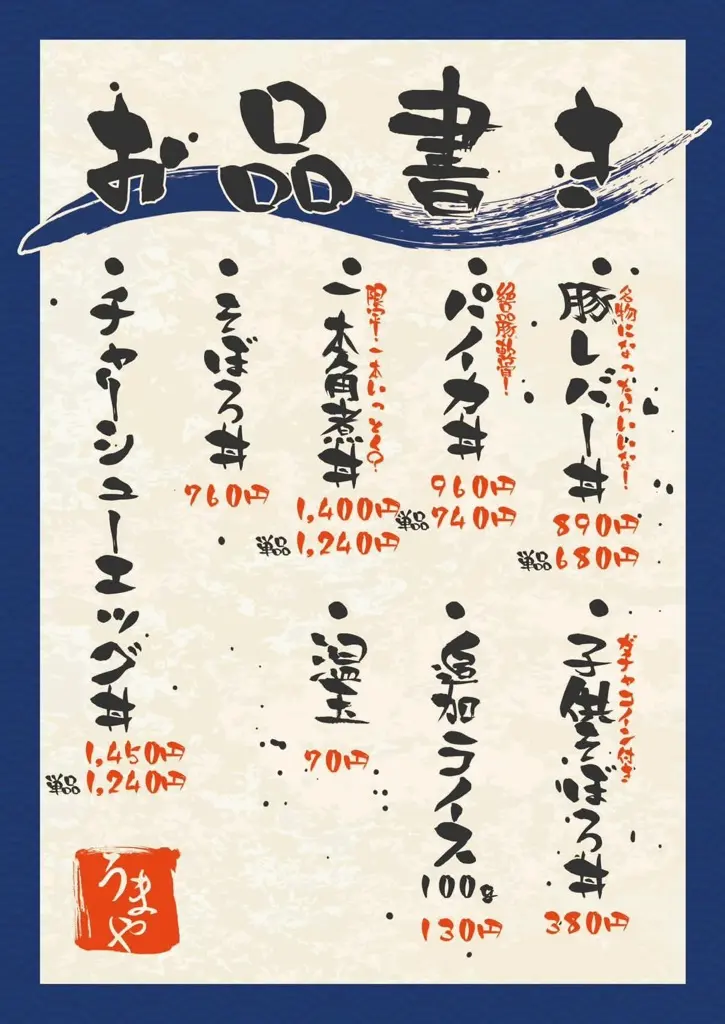 お品書き
豚レバー丼
名物になったらいいな!
890円
単品680円
パイカ丼
絶品豚軟骨!
960円
単品740円
一本角煮丼
限定!一本いっとく?
1,400円
単品1,240円
そぼろ丼
760円
チャーシューエッグ丼
1,450円
単品1,240円
子供そぼろ丼
ガチャコイン付き
380円
追加ライス
100g
130円
温玉
70円
うまや